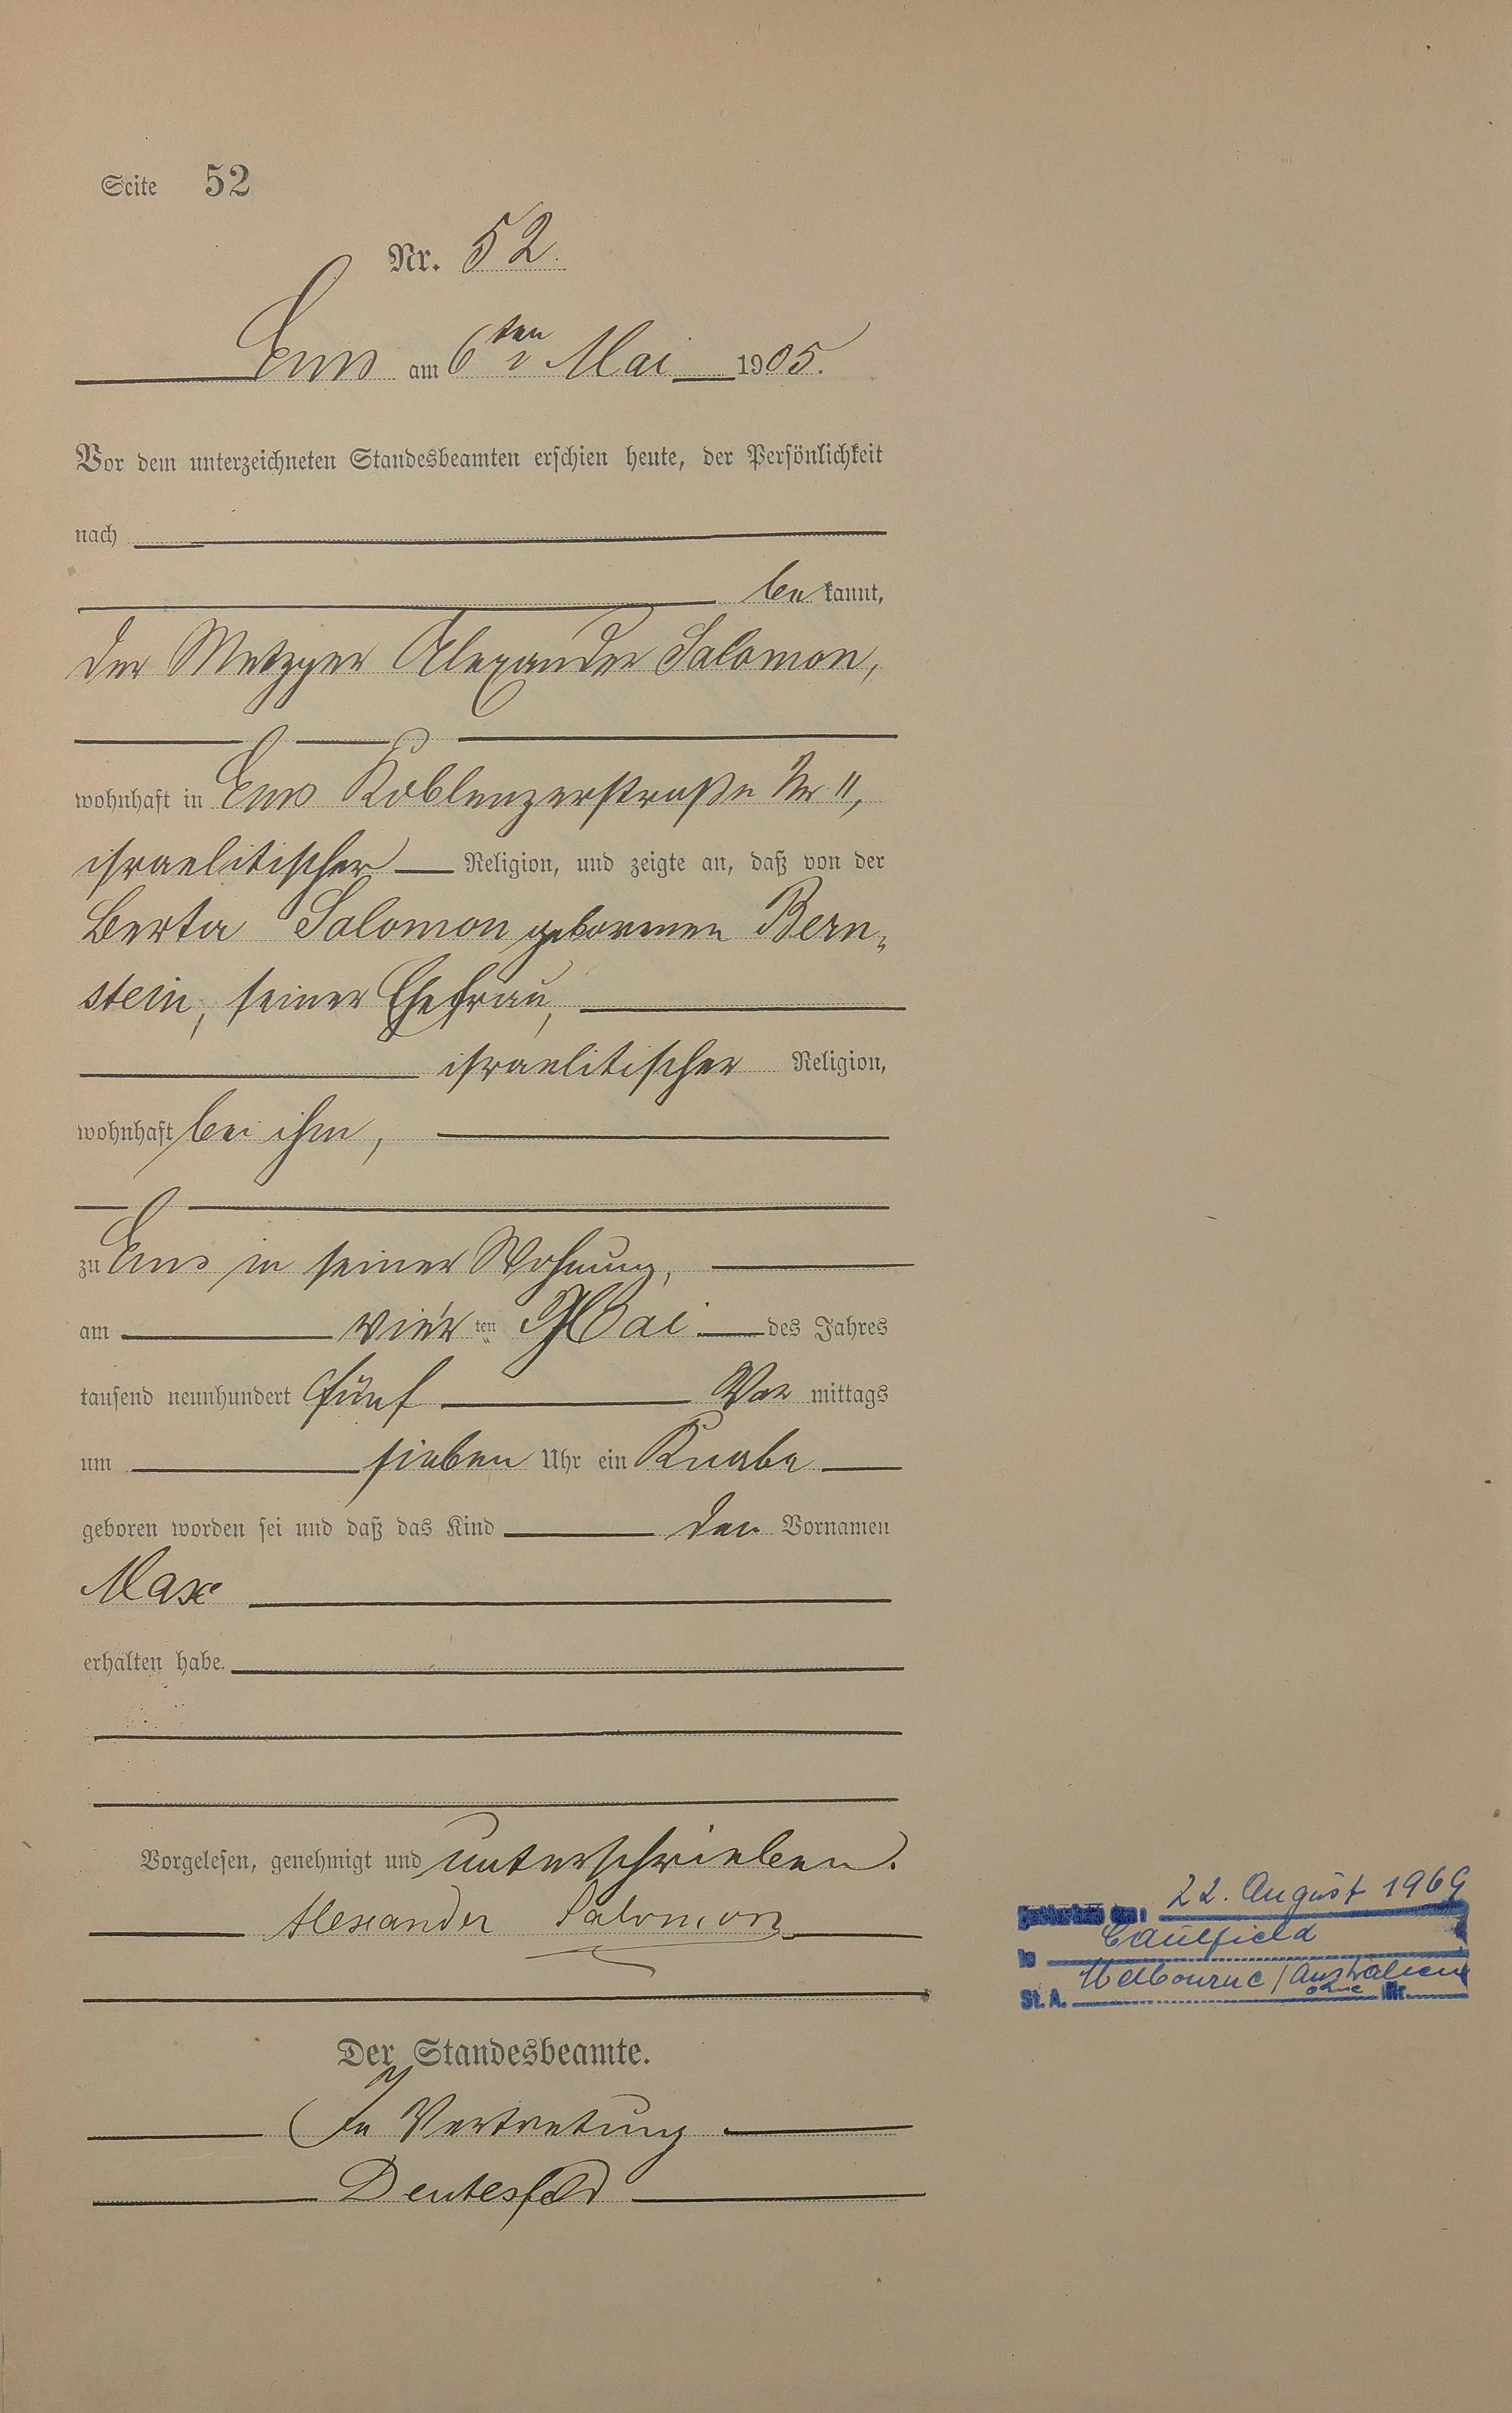 Seite 52
Nr. 52.
Ems am 6ten Mai 1905.
Vor dem unterzeichneten Standesbeamten erschien heute, der Persönlichkeit
nach
be kannt,
der Metzger Alexander Salomon,
wohnhaft in Ems Koblenzerstraße Nr 11,
israelitischer Religion, und zeigte an, daß von der
Berta Salomon geborenen Bern-
stein, seiner Ehefrau,
israelitischer Religion,
wohnhaft bei ihm,
zu Ems in seiner Wohnung,
am vier ten Mai des Jahres
tausend neunhundert fünf Vor mittags
um sieben Uhr ein Knabe
geboren worden sei und daß das Kind den Vornamen
Max
erhalten habe.
Vorgelesen, genehmigt und unterschrieben.
Alexander Salomon
Der Standesbeamte.
In Vertretung
22. August 1969
in Caulfield
St. A. Melbourne / Australien
ohne Nr.